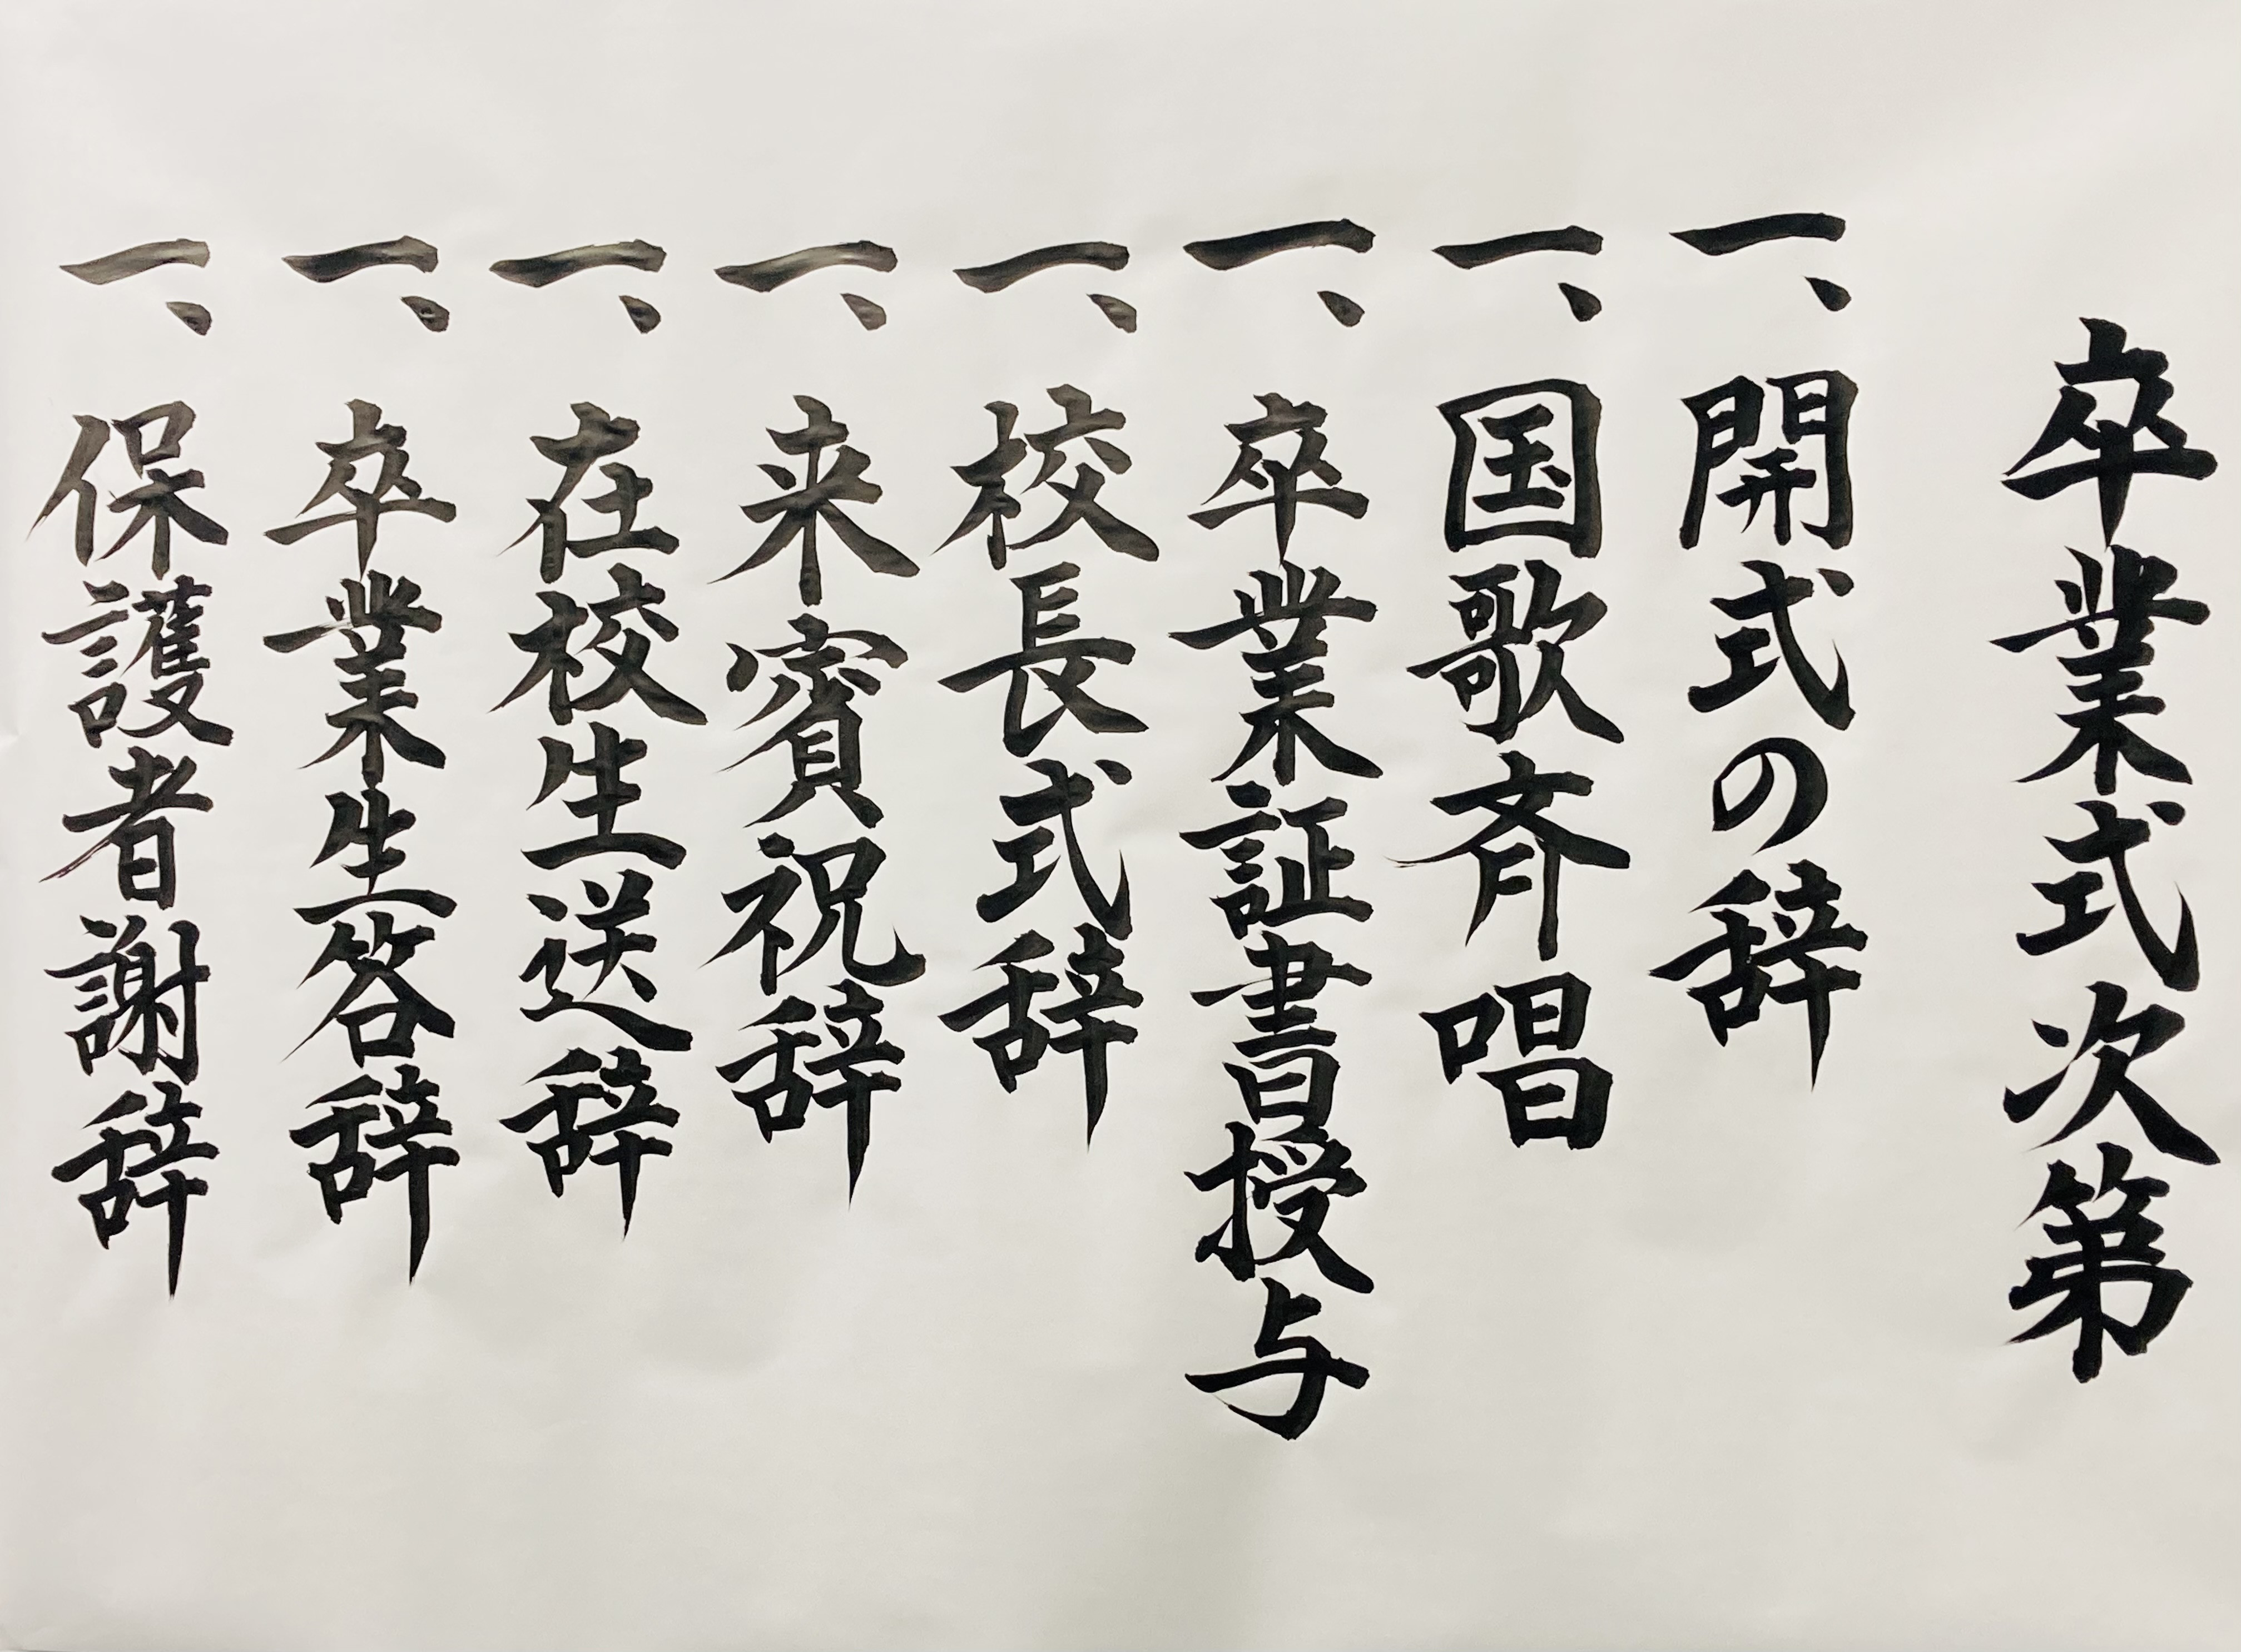 卒業式次第
一、開式の辞
一、国歌斉唱
一、卒業証書授与
一、校長式辞
一、来賓祝辞
一、在校生送辞
一、卒業生答辞
一、保護者謝辞